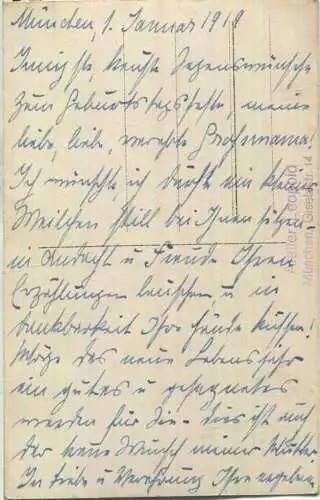 München, 1. Januar 1919
Innigste, treuste Segenswünsche
zum Geburtstagsfeste, meine
liebe, liebe, verehrte Grossmama!
Ich wünschte, ich dürfte ein kleines
Weilchen still bei Ihnen sitzen,
in Andacht u Freude Ihren
Erzählungen lauschen u in
Dankbarkeit Ihre Hände küssen!
Möge das neue Lebensjahr
ein gutes u gesegnetes
werden für Sie - dies ist auch
der Wunsch meiner Mutter.
In Liebe u Verehrung Ihre ergeben
Atelier
München,